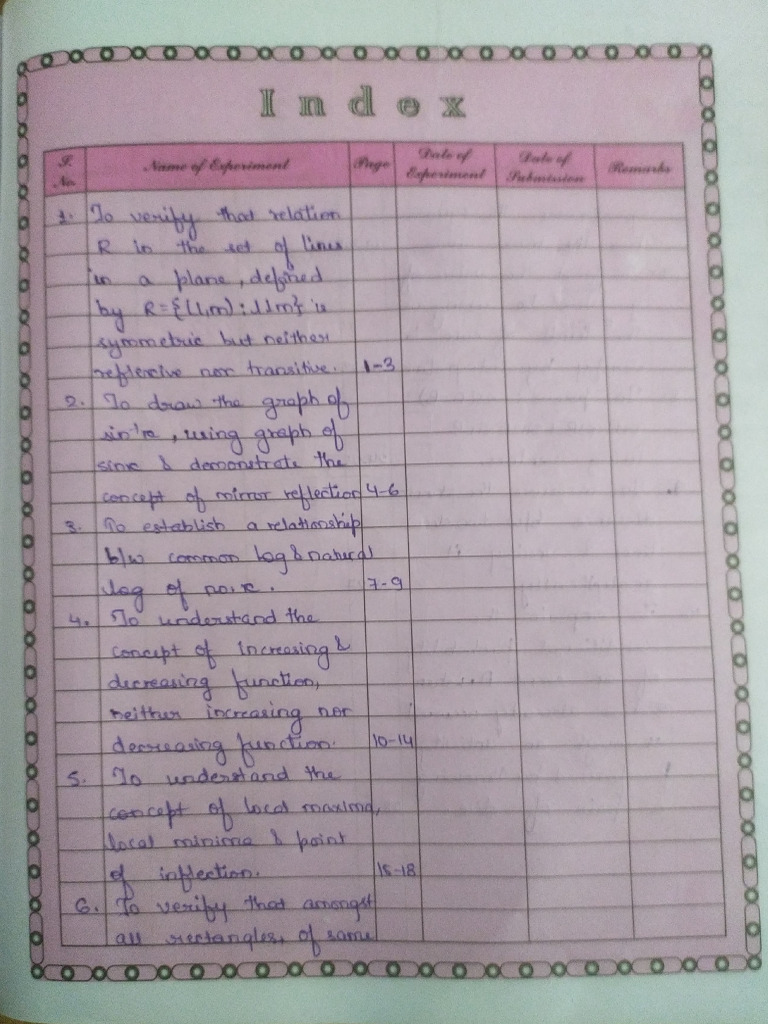 Index
S. No. Name of Experiment Page Date of Experiment Date of Submission Remarks
1. To verify that relation
R in the set of lines
in a plane, defined
by R = {(l,m) : l⊥m} is
symmetric but neither
reflexive nor transitive. 1-3
2. To draw the graph of
sin⁻¹x, using graph of
sinx & demonstrate the
concept of mirror reflection 4-6
3. To establish a relationship
b/w common log & natural
log of no. x. 7-9
4. To understand the
concept of increasing &
decreasing function,
neither increasing nor
decreasing function. 10-14
5. To understand the
concept of local maxima,
local minima & point
of inflection. 15-18
6. To verify that amongst
all rectangles, of same